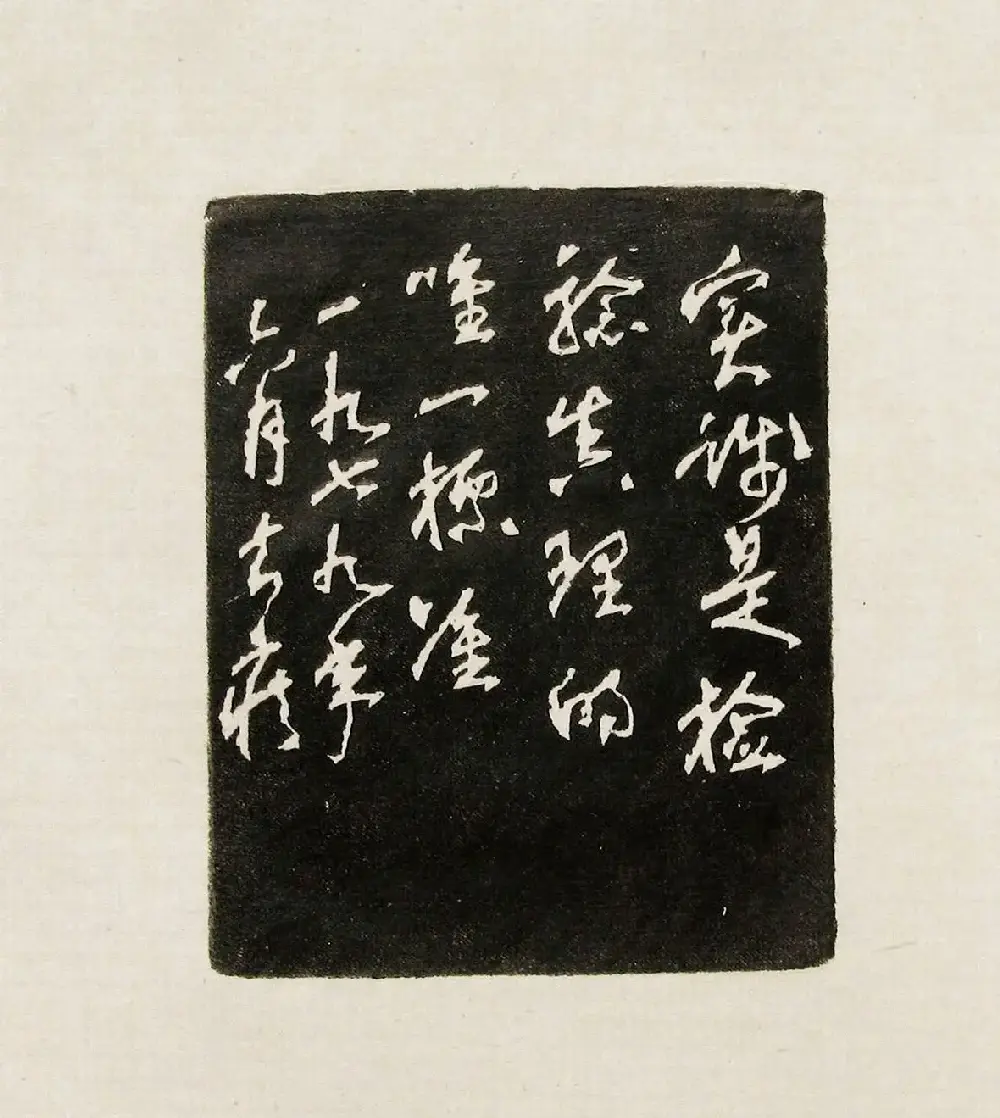 实践是检
验真理的
唯一標准
一九七九年
六月去疾